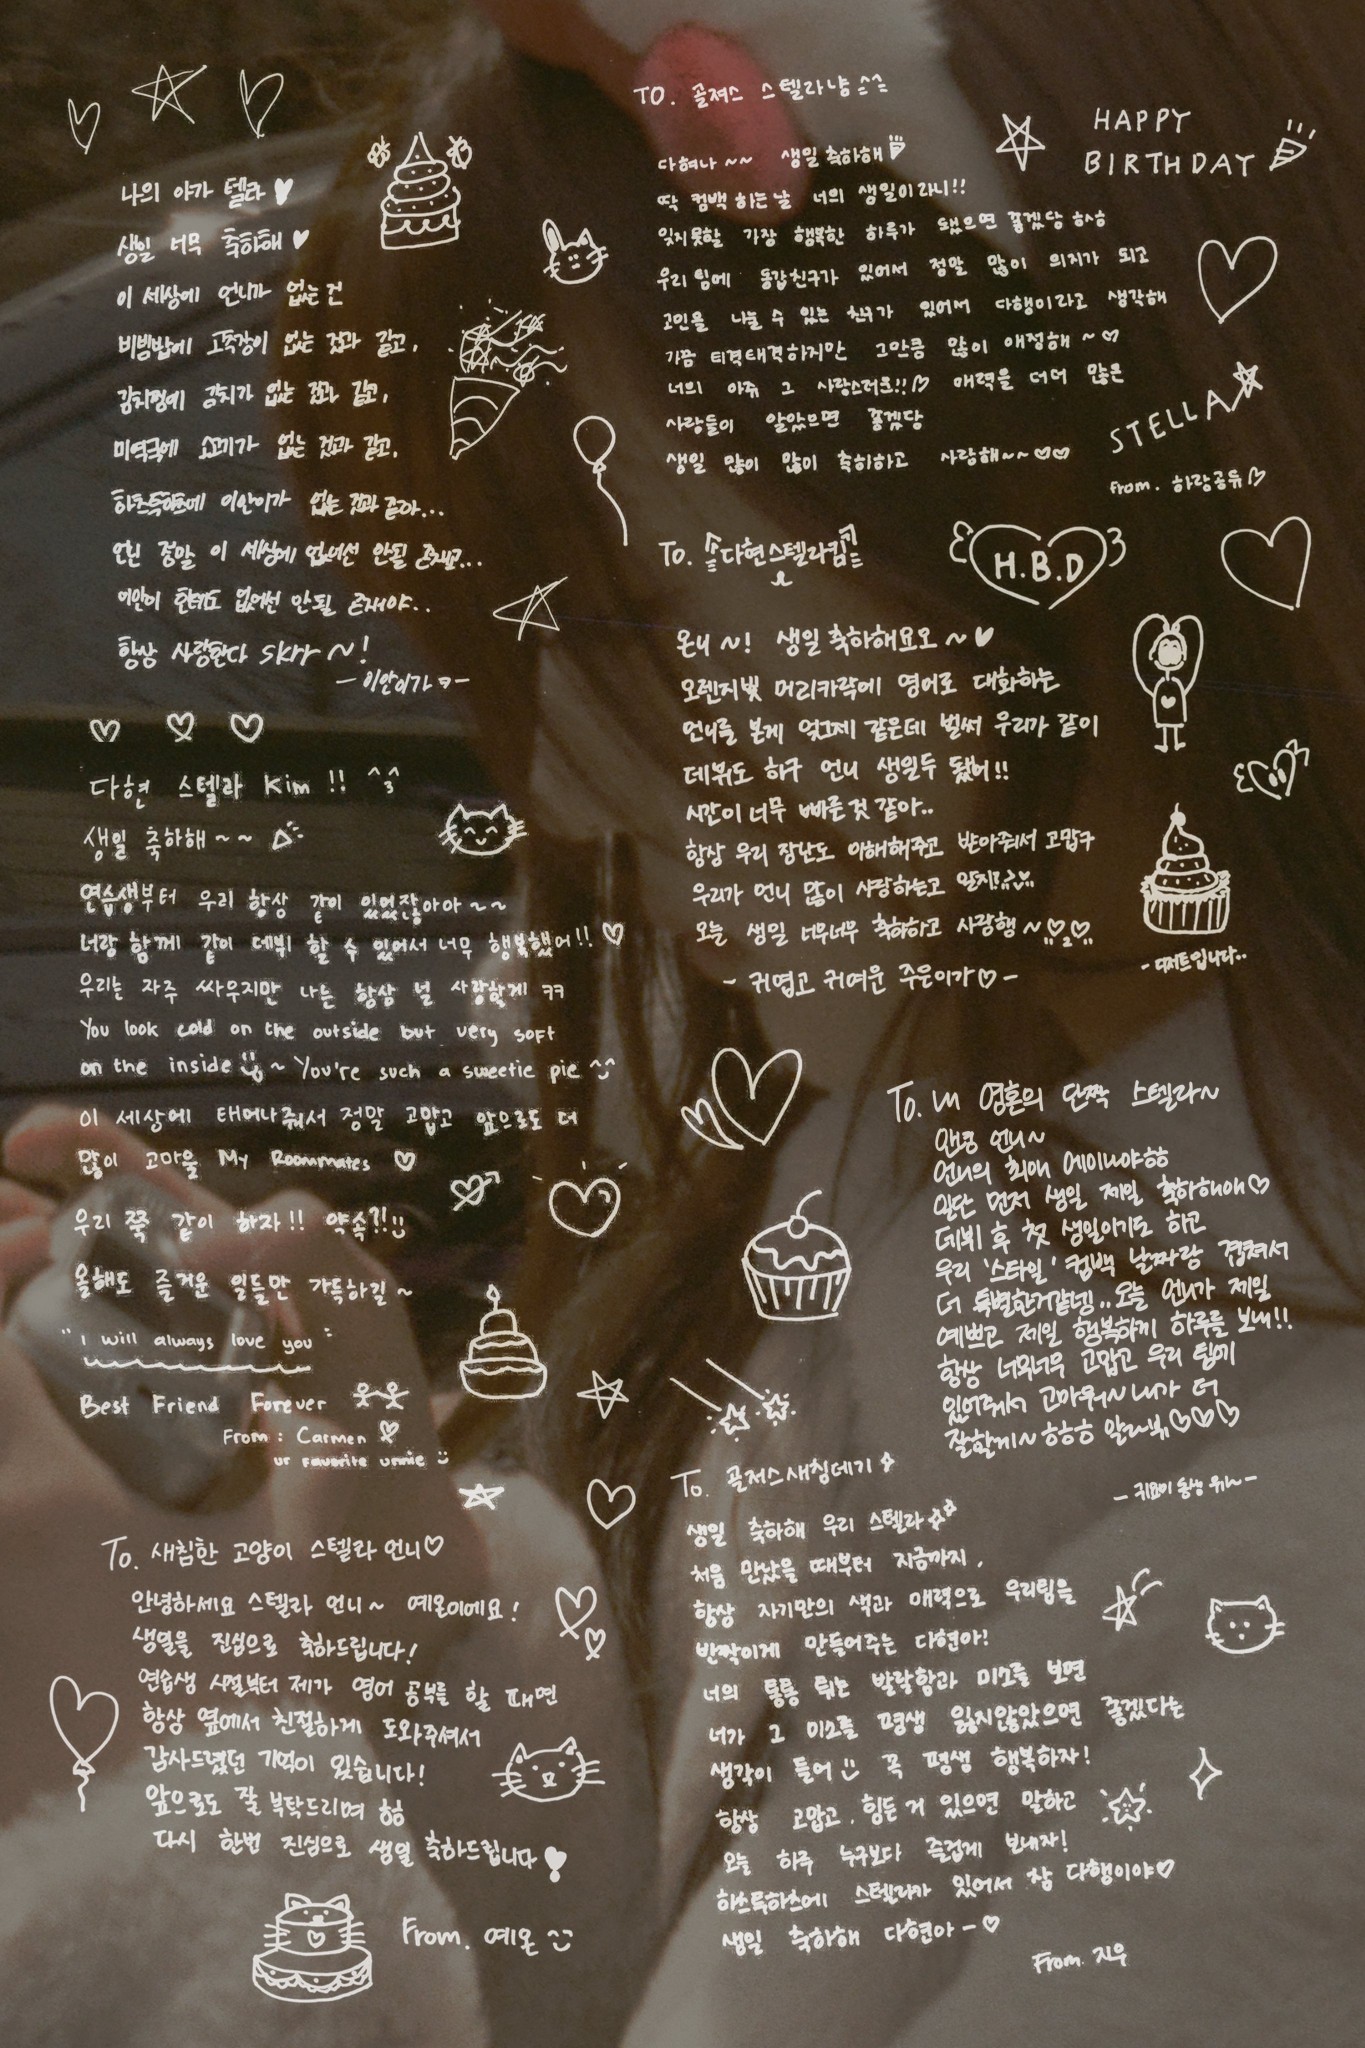 나의 아가 텔라
생일 너무 축하해
이 세상에 언니가 없는 건
비빔밥에 고추장이 없는 것과 같고,
김치찜에 김치가 없는 것과 같고,
미역국에 소고기가 없는 것과 같고,
하츠투하츠에 이안이가 없는 것과 같아...
언닌 정말 이 세상에 없어선 안될 존재고...
이안이 한테도 없어선 안될 존재야..
항상 사랑한다 skrr ~!
- 이안이가 ㅋ -
TO. 골져스 스텔라냥^^
다혀나 ~~ 생일 축하해
딱 컴백 하는 날 너의 생일이라니!!
잊지 못할 가장 행복한 하루가 됐으면 좋겠당 하하
우리 팀에 동갑친구가 있어서 정말 많이 의지가 되고
고민을 나눌 수 있는 친구가 있어서 다행이라고 생각해
가끔 티격태격하지만 그만큼 많이 애정해 ~♡
너의 아쥬 그 사랑스러운!! 매력을 더더 많은
사람들이 알았으면 좋겠당
생일 많이 많이 축하하고 사랑해~~♡♡
HAPPY
BIRTHDAY
STELLA
From. 하랑공듀
To. 다현스텔라킴
H.B.D
온니 ~! 생일 축하해요오 ~♥
오렌지빛 머리카락에 영어로 대화하는
언니를 본게 엊그제 같은데 벌써 우리가 같이
데뷔도 하구 언니 생일두 됐어!!
시간이 너무 빠른것 같아..
항상 우리 장난도 이해해주고 받아줘서 고맙구
우리가 언니 많이 사랑하는고 알지!?
오늘 생일 너무너무 축하하고 사랑행 ~♡2♡
- 귀엽고 귀여운 주은이가♡ -
- 디저트입니다..
다현 스텔라 Kim !! ^3^
생일 축하해 ~~
연습생부터 우리 항상 같이 있었잖아아 ~~
너랑 함께 같이 데뷔 할 수 있어서 너무 행복했어!! ♡
우리는 자주 싸우지만 나는 항상 널 사랑할게 ㅋㅋ
You look cold on the outside but very soft
on the inside ~ You're such a sweetie pie
이 세상에 태어나줘서 정말 고맙고 앞으로도 더
많이 고마울 My Roommates ♡
우리 쭉 같이 하자!! 약속?!
올해도 즐거운 일들만 가득하길 ~
"I will always love you"
Best Friend Forever
From : Carmen
ur favorite unnie
To. 내 영혼의 단짝 스텔라~
안녕 언니~
언니의 최애 에이나야ㅎㅎ
일단 먼저 생일 제일 축하해애♡
데뷔 후 첫 생일이기도 하고
우리 '스타일' 컴백 날짜랑 겹쳐서
더 특별한거같넹..오늘 언니가 제일
예쁘고 제일 행복하게 하루를 보내!!
항상 너무너무 고맙고 우리 팀에
있어줘서 고마워~ 내가 더
잘할게~ ㅎㅎㅎ 알라뷰♡♡♡
To. 새침한 고양이 스텔라 언니♡
안녕하세요 스텔라 언니~ 예온이에요!
생일을 진심으로 축하드립니다!
연습생 시절부터 제가 영어 공부를 할 때면
항상 옆에서 친절하게 도와주셔서
감사드렸던 기억이 있습니다!
앞으로도 잘 부탁드리며 ㅎㅎ
다시 한번 진심으로 생일 축하드립니다
From. 예온
To. 골저스새침데기
생일 축하해 우리 스텔라
처음 만났을 때부터 지금까지,
항상 자기만의 색과 매력으로 우리팀을
반짝이게 만들어주는 다현아!
너의 통통 튀는 발랄함과 미소를 보면
너가 그 미소를 평생 잃지않았으면 좋겠다는
생각이 들어 꼭 평생 행복하자!
항상 고맙고, 힘든 거 있으면 말하고
오늘 하루 누구보다 즐겁게 보내자!
하츠투하츠에 스텔라가 있어서 참 다행이야♡
생일 축하해 다현아 - ♡
From. 지우